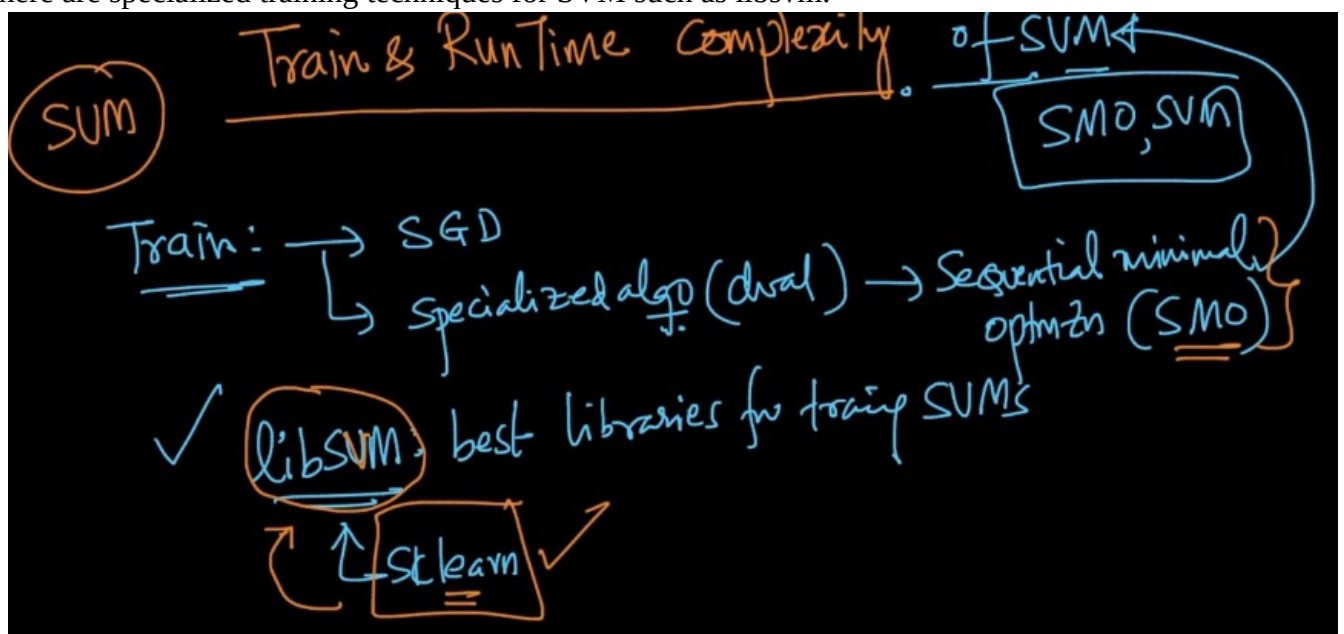 here are specialized training techniques for SVM such as libsvm.
Train & RunTime Complexity. of SVM
SVM
SMO, SVM
Train: → SGD
↳ specialized algo (dual) → Sequential minimal
optmzn (SMO)
✓ libSVM: best libraries for traing SVMs
sklearn ✓